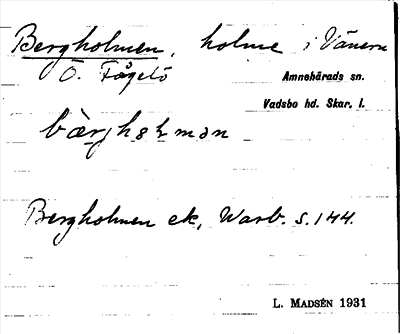 Bergholmen, holme i Vänern
Ö. Fågelö
Amnehärads sn.
Vadsbo hd. Skar. l.
bàrghəlmən
Bergholmen ek, Warb. s. 144.
L. MADSÉN 1931